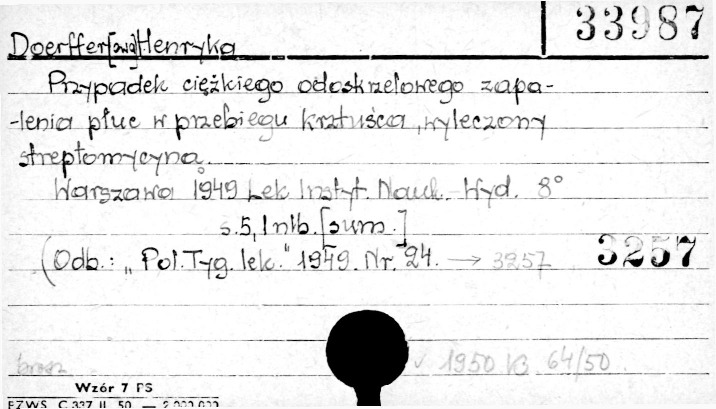 33987
Doerffer[ową] Henryka
Przypadek ciężkiego odoskrzelowego zapa-
-lenia płuc w przebiegu krztuśca, wyleczony
streptomycyną.
Warszawa 1949 Lek Instyt. Nauk. Wyd. 8°
s.5, 1 nlb. [sum.]
(Odb.: „Pol. Tyg. lek." 1949. Nr. 24. → 3257
3257
brosz
1950 64/50
Wzór 7 PS
PZWS. C 337 II. 50. — 2 000 000